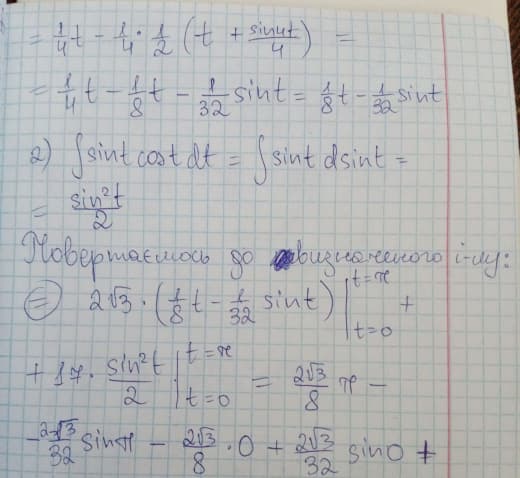 = 1/4 t - 1/4 · 1/2 (t + sin4t/4) =
= 1/4 t - 1/8 t - 1/32 sint = 1/8 t - 1/32 sint
2) ∫ sint cost dt = ∫ sint dsint =
= sin²t/2
Повертаємось до визначеного і-лу:
= 2√3 · (1/8 t - 1/32 sint) | t=π t=0 +
+ 17 · sin²t/2 | t=π t=0 = 2√3/8 π -
- 2√3/32 sinπ - 2√3/8 · 0 + 2√3/32 sin0 +